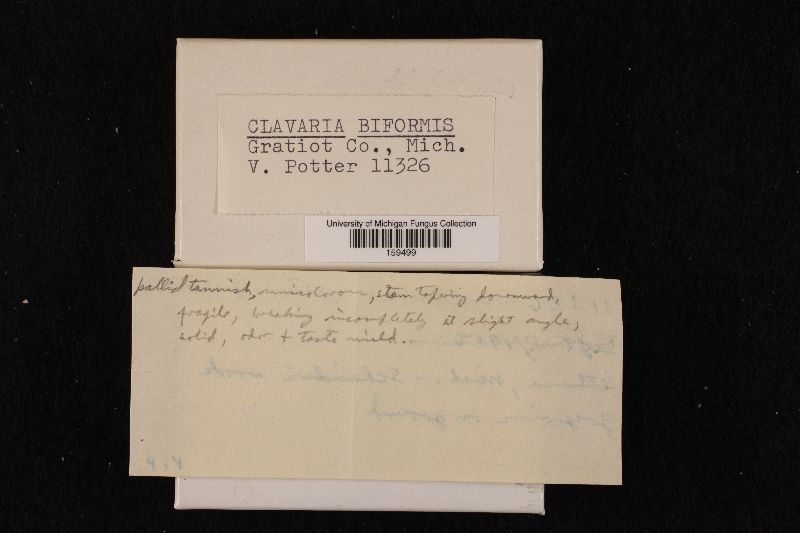 CLAVARIA BIFORMIS
Gratiot Co., Mich.
V. Potter 11326
University of Michigan Fungus Collection
159499
pallid tannish, unicolorous, stem tapering downward,
fragile, breaking incompletely at slight angle,
solid, odor + taste mild.